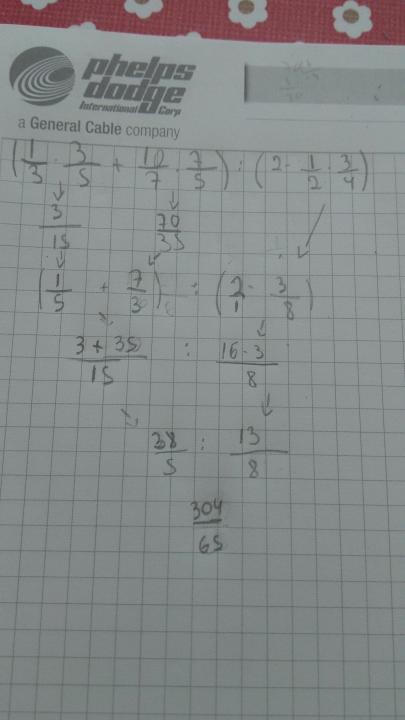 phelps
dodge
International Corp
a General Cable company
(1/3 · 3/5 + 10/7 · 7/5) : (2 - 1/2 · 3/4)
3/15 70/35
(1/5 + 7/3) : (2/1 - 3/8)
3 + 35/15 : 16 - 3/8
38/5 : 13/8
304/65